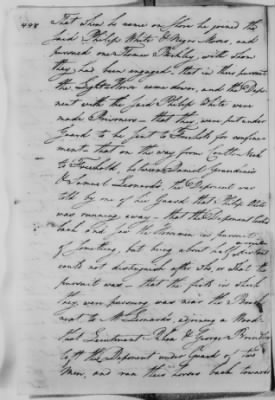 498
That when he came on Shore he joined the
said Philip White & Negro Moses, and
pursued one Thomas Berkley, with whom
they had been engaged, that in their pursuit
the Light Horse came down, and the Depo-
nent with the said Philip White were
made Prisoners – that they were put under
Guard to be sent to Freehold for confine-
ment – that on the way from Colts Neck
to Freehold, between Daniel Grandin's
& Samuel Leonard's, the Deponent was
told by one of his Guard that Philip White
was running away – that the Deponent looked
back and saw the Horsemen in pursuit
of something, but being about half distant
could not distinguish after who, or what the
pursuit was – that the field in which
they were pursuing was near the
next to Mr Leonards, adjoining a Wood
that Lieutenant Rhea & George Brindley
left the Deponent under Guard of two
Men, and ran their Horses back towards